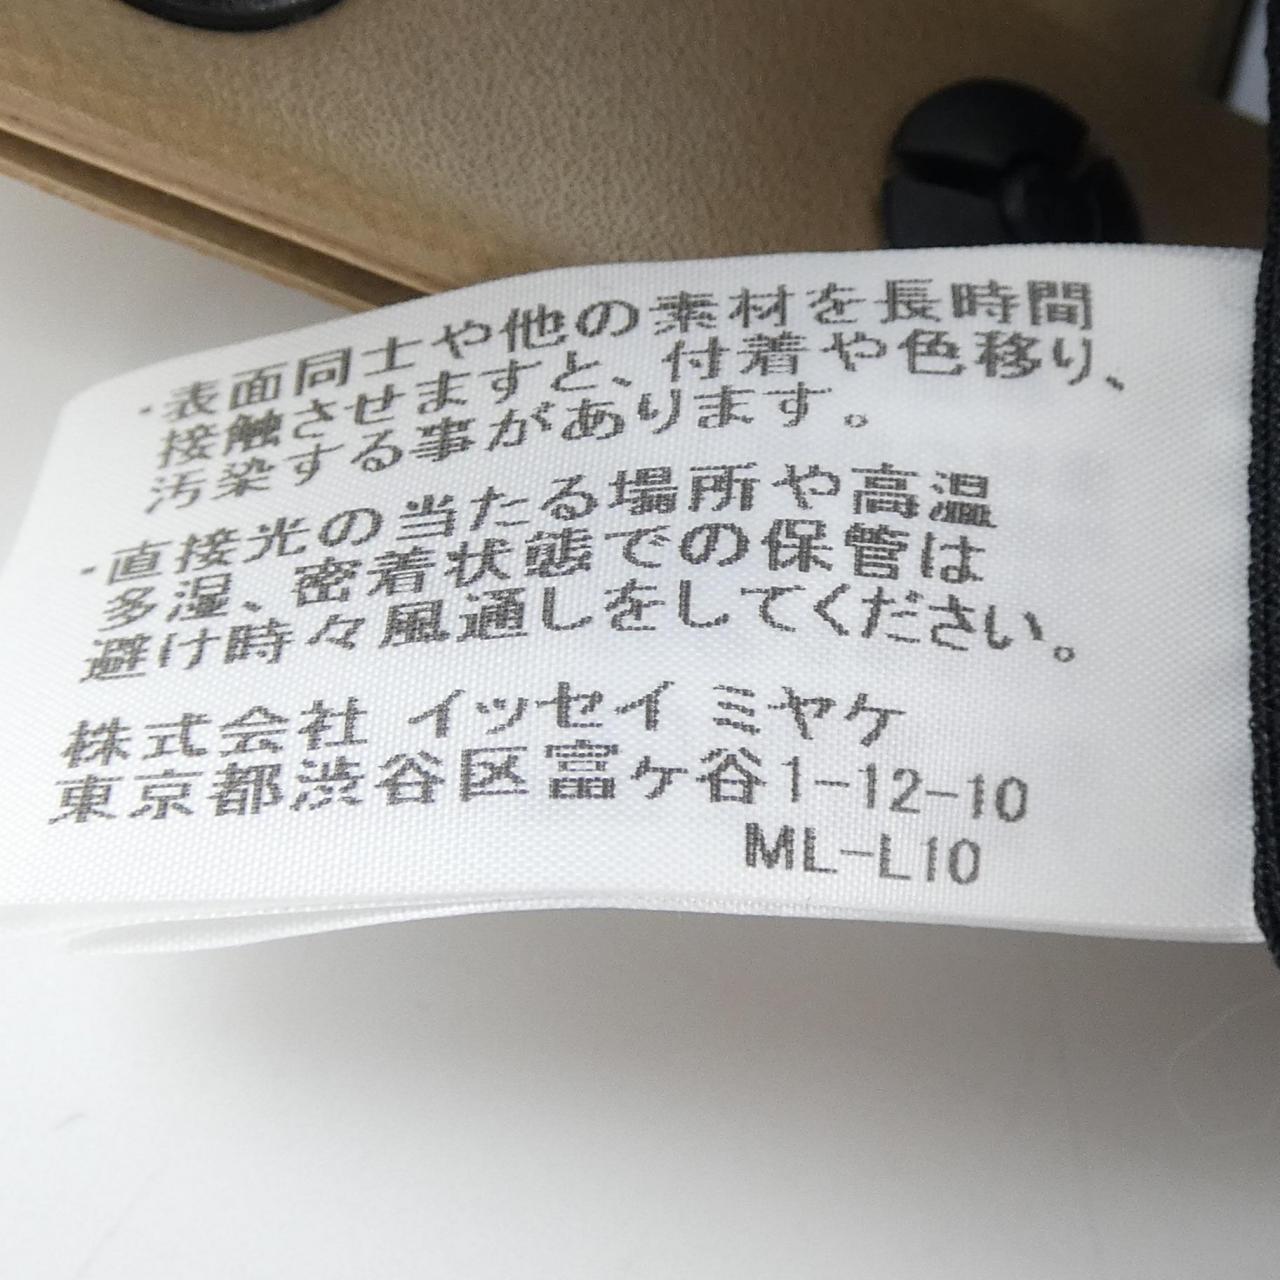 ・表面同士や他の素材を長時間
接触させますと、付着や色移り、
汚染する事があります。
・直接光の当たる場所や高温
多湿、密着状態での保管は
避け時々風通しをしてください。
株式会社 イッセイ ミヤケ
東京都渋谷区富ヶ谷1-12-10
ML-L10